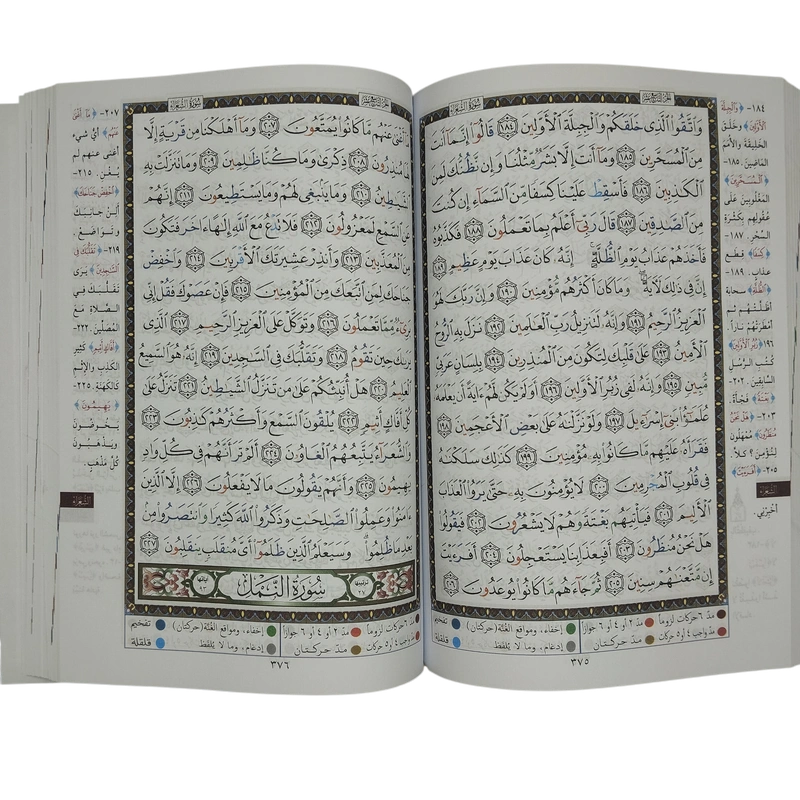 سورة الشعراء
الجزء التاسع عشر
وَاتَّقُوا الَّذِي خَلَقَكُمْ وَالْجِبِلَّةَ الْأَوَّلِينَ ١٨٤ قَالُوا إِنَّمَا أَنتَ
مِنَ الْمُسَحَّرِينَ ١٨٥ وَمَا أَنتَ إِلَّا بَشَرٌ مِّثْلُنَا وَإِن نَّظُنُّكَ لَمِنَ
الْكَاذِبِينَ ١٨٦ فَأَسْقِطْ عَلَيْنَا كِسَفًا مِّنَ السَّمَاءِ إِن كُنتَ
مِنَ الصَّادِقِينَ ١٨٧ قَالَ رَبِّي أَعْلَمُ بِمَا تَعْمَلُونَ ١٨٨ فَكَذَّبُوهُ
فَأَخَذَهُمْ عَذَابُ يَوْمِ الظُّلَّةِ إِنَّهُ كَانَ عَذَابَ يَوْمٍ عَظِيمٍ ١٨٩
إِنَّ فِي ذَٰلِكَ لَآيَةً وَمَا كَانَ أَكْثَرُهُم مُّؤْمِنِينَ ١٩٠ وَإِنَّ رَبَّكَ لَهُوَ
الْعَزِيزُ الرَّحِيمُ ١٩١ وَإِنَّهُ لَتَنزِيلُ رَبِّ الْعَالَمِينَ ١٩٢ نَزَلَ بِهِ الرُّوحُ
الْأَمِينُ ١٩٣ عَلَىٰ قَلْبِكَ لِتَكُونَ مِنَ الْمُنذِرِينَ ١٩٤ بِلِسَانٍ عَرَبِيٍّ
مُّبِينٍ ١٩٥ وَإِنَّهُ لَفِي زُبُرِ الْأَوَّلِينَ ١٩٦ أَوَلَمْ يَكُن لَّهُمْ آيَةً أَن يَعْلَمَهُ
عُلَمَاءُ بَنِي إِسْرَائِيلَ ١٩٧ وَلَوْ نَزَّلْنَاهُ عَلَىٰ بَعْضِ الْأَعْجَمِينَ ١٩٨
فَقَرَأَهُ عَلَيْهِم مَّا كَانُوا بِهِ مُؤْمِنِينَ ١٩٩ كَذَٰلِكَ سَلَكْنَاهُ
فِي قُلُوبِ الْمُجْرِمِينَ ٢٠٠ لَا يُؤْمِنُونَ بِهِ حَتَّىٰ يَرَوُا الْعَذَابَ
الْأَلِيمَ ٢٠١ فَيَأْتِيَهُم بَغْتَةً وَهُمْ لَا يَشْعُرُونَ ٢٠٢ فَيَقُولُوا
هَلْ نَحْنُ مُنظَرُونَ ٢٠٣ أَفَبِعَذَابِنَا يَسْتَعْجِلُونَ ٢٠٤ أَفَرَأَيْتَ
إِن مَّتَّعْنَاهُمْ سِنِينَ ٢٠٥ ثُمَّ جَاءَهُم مَّا كَانُوا يُوعَدُونَ ٢٠٦
١٨٤- ﴿وَالْجِبِلَّةَ
الْأَوَّلِينَ﴾ وخَلَقَ
الخليقة والأمم
الماضين. ١٨٥-
﴿الْمُسَحَّرِينَ﴾
المغلوبين على
عقولهم بكثرة
السحر. ١٨٧-
﴿كِسَفًا﴾ قطع
عذاب. ١٨٩-
﴿الظُّلَّةِ﴾ سحابة
أظلتهم ثم
أمطرتهم ناراً.
١٩٦- ﴿زُبُرِ الْأَوَّلِينَ﴾
كتب الرسل
السابقين. ٢٠٢-
﴿بَغْتَةً﴾ فجأة.
٢٠٣- ﴿هَلْ نَحْنُ
مُنظَرُونَ﴾ ممهلون
لنؤمن؟ كلا.
٢٠٥- ﴿أَفَرَأَيْتَ﴾
أخبرني.
الشعراء
مدّ ٦ حركات لزوماً
مدّ ٢ أو ٤ أو ٦ جوازاً
إخفاء، ومواقع الغنّة (حركتان)
تفخيم
مدّ واجب ٤ أو ٥ حركات
مدّ حركتان
إدغام، وما لا يُلفَظ
قلقلة
٣٧٥
سورة الشعراء
الجزء التاسع عشر
مَا أَغْنَىٰ عَنْهُم مَّا كَانُوا يُمَتَّعُونَ ٢٠٧ وَمَا أَهْلَكْنَا مِن قَرْيَةٍ إِلَّا
لَهَا مُنذِرُونَ ٢٠٨ ذِكْرَىٰ وَمَا كُنَّا ظَالِمِينَ ٢٠٩ وَمَا تَنَزَّلَتْ بِهِ
الشَّيَاطِينُ ٢١٠ وَمَا يَنبَغِي لَهُمْ وَمَا يَسْتَطِيعُونَ ٢١١ إِنَّهُمْ
عَنِ السَّمْعِ لَمَعْزُولُونَ ٢١٢ فَلَا تَدْعُ مَعَ اللَّهِ إِلَٰهًا آخَرَ فَتَكُونَ
مِنَ الْمُعَذَّبِينَ ٢١٣ وَأَنذِرْ عَشِيرَتَكَ الْأَقْرَبِينَ ٢١٤ وَاخْفِضْ
جَنَاحَكَ لِمَنِ اتَّبَعَكَ مِنَ الْمُؤْمِنِينَ ٢١٥ فَإِنْ عَصَوْكَ فَقُلْ إِنِّي
بَرِيءٌ مِّمَّا تَعْمَلُونَ ٢١٦ وَتَوَكَّلْ عَلَى الْعَزِيزِ الرَّحِيمِ ٢١٧ الَّذِي
يَرَاكَ حِينَ تَقُومُ ٢١٨ وَتَقَلُّبَكَ فِي السَّاجِدِينَ ٢١٩ إِنَّهُ هُوَ السَّمِيعُ
الْعَلِيمُ ٢٢٠ هَلْ أُنَبِّئُكُمْ عَلَىٰ مَن تَنَزَّلُ الشَّيَاطِينُ ٢٢١ تَنَزَّلُ عَلَىٰ
كُلِّ أَفَّاكٍ أَثِيمٍ ٢٢٢ يُلْقُونَ السَّمْعَ وَأَكْثَرُهُمْ كَاذِبُونَ ٢٢٣
وَالشُّعَرَاءُ يَتَّبِعُهُمُ الْغَاوُونَ ٢٢٤ أَلَمْ تَرَ أَنَّهُمْ فِي كُلِّ وَادٍ
يَهِيمُونَ ٢٢٥ وَأَنَّهُمْ يَقُولُونَ مَا لَا يَفْعَلُونَ ٢٢٦ إِلَّا الَّذِينَ
آمَنُوا وَعَمِلُوا الصَّالِحَاتِ وَذَكَرُوا اللَّهَ كَثِيرًا وَانتَصَرُوا مِن
بَعْدِ مَا ظُلِمُوا وَسَيَعْلَمُ الَّذِينَ ظَلَمُوا أَيَّ مُنقَلَبٍ يَنقَلِبُونَ ٢٢٧
ترتيبها ٢٧ سُورَةُ النَّمْلِ آياتها ٩٣
٢٠٧- ﴿مَا أَغْنَىٰ
عَنْهُم﴾ أيُّ شيء
أغنى عنهم لم
يُغن. ٢١٥-
﴿اخْفِضْ جَنَاحَكَ﴾
ألِنْ جانبك
وتواضع.
٢١٩- ﴿تَقَلُّبَكَ فِي
السَّاجِدِينَ﴾ يرى
تقلبك في
الصلاة مع
المصلين. ٢٢٢-
﴿أَفَّاكٍ أَثِيمٍ﴾ كثير
الكذب والإثم
كالكهنة. ٢٢٥-
﴿يَهِيمُونَ﴾
يخوضون
ويذهبون
كلَّ مذهب.
الشعراء
مدّ ٦ حركات لزوماً
مدّ ٢ أو ٤ أو ٦ جوازاً
إخفاء، ومواقع الغنّة (حركتان)
تفخيم
مدّ واجب ٤ أو ٥ حركات
مدّ حركتان
إدغام، وما لا يُلفَظ
قلقلة
٣٧٦